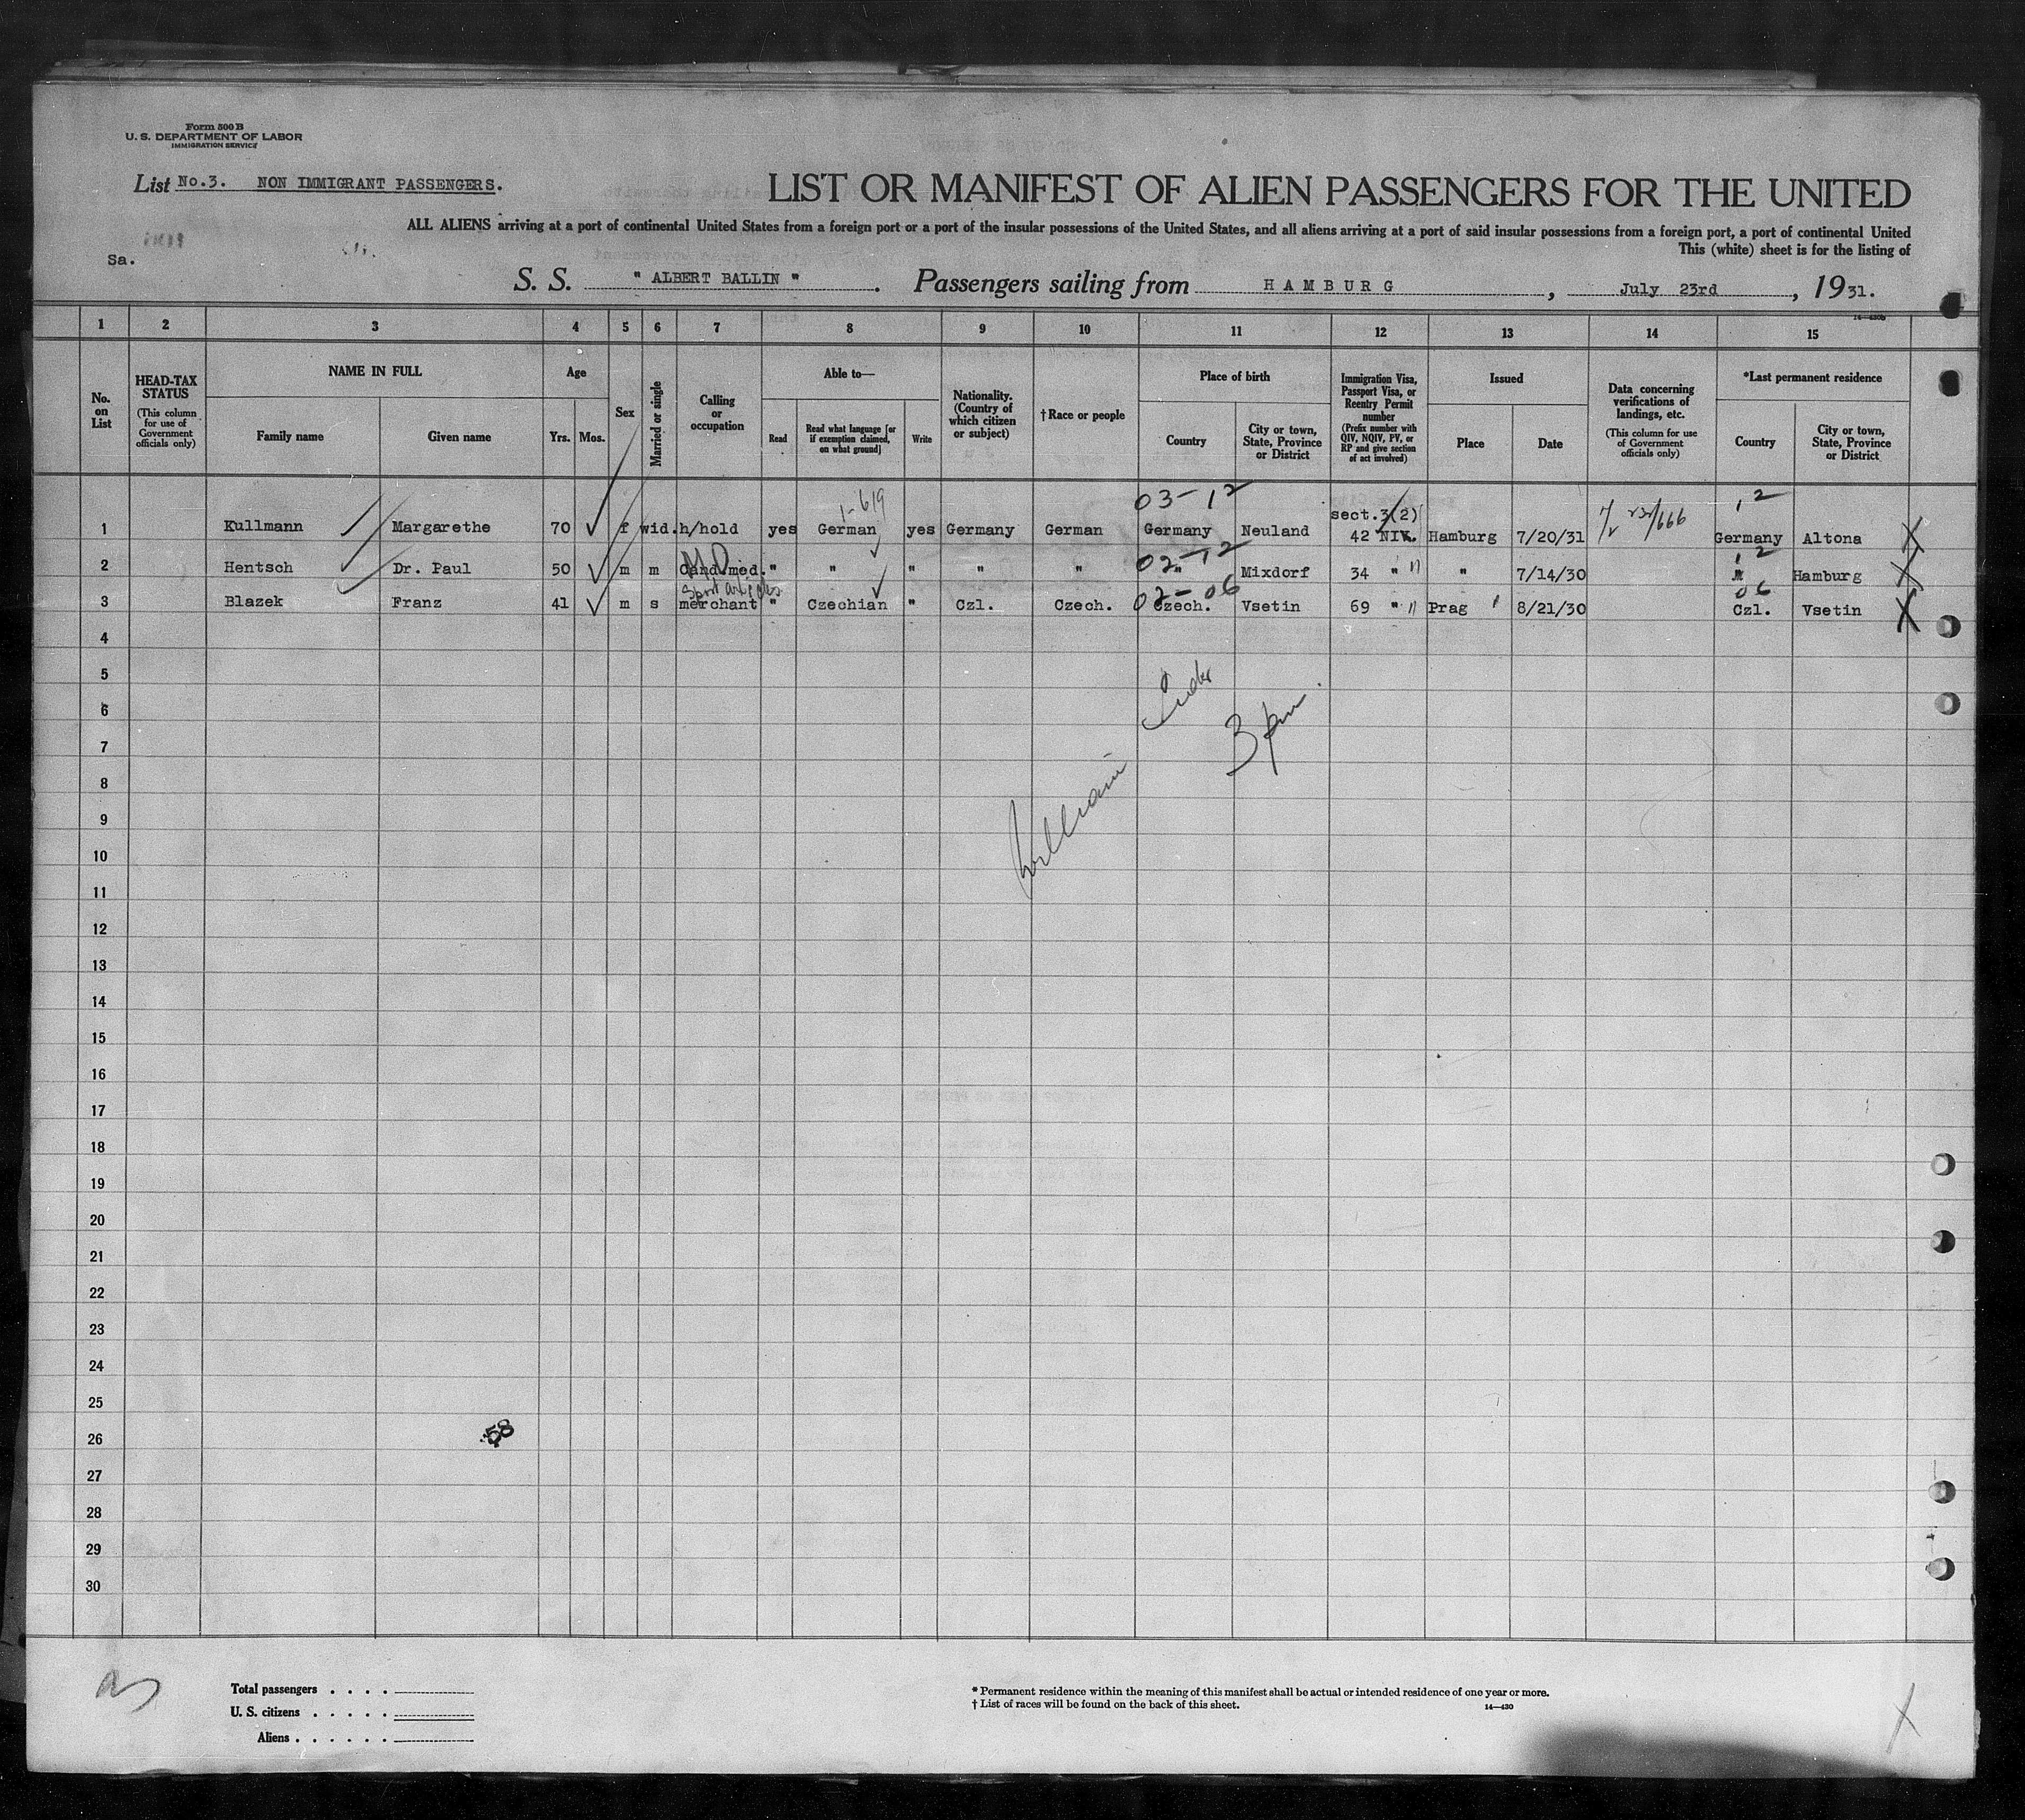 Form 500 B
U. S. DEPARTMENT OF LABOR
IMMIGRATION SERVICE
List No.3. NON IMMIGRANT PASSENGERS.
LIST OR MANIFEST OF ALIEN PASSENGERS FOR THE UNITED
ALL ALIENS arriving at a port of continental United States from a foreign port or a port of the insular possessions of the United States, and all aliens arriving at a port of said insular possessions from a foreign port, a port of continental United
This (white) sheet is for the listing of
Sa.
S. S. " ALBERT BALLIN " . Passengers sailing from HAMBURG , July 23rd , 1931.
1 2 3 4 5 6 7 8 9 10 11 12 13 14 15
No. on List
HEAD-TAX STATUS (This column for use of Government officials only)
NAME IN FULL
Family name
Given name
Age
Yrs. Mos.
Sex
Married or single
Calling or occupation
Able to—
Read
Read what language [or if exemption claimed, on what ground]
Write
Nationality. (Country of which citizen or subject)
† Race or people
Place of birth
Country
City or town, State, Province or District
Immigration Visa, Passport Visa, or Reentry Permit number (Prefix number with QIV, NQIV, PV, or RP and give section of act involved)
Issued
Place
Date
Data concerning verifications of landings, etc. (This column for use of Government officials only)
*Last permanent residence
Country
City or town, State, Province or District
1-619 03-12 sect.3(2) 12
1 Kullmann Margarethe 70 f wid. h/hold yes German yes Germany German Germany Neuland 42 NIV. Hamburg 7/20/31 Germany Altona
MD 02-12 12
2 Hentsch Dr. Paul 50 m m Cand.med. " " " " " " Mixdorf 34 " " 7/14/30 " Hamburg
02-06 06
3 Blazek Franz 41 m s merchant " Czechian " Czl. Czech. Czech. Vsetin 69 " Prag 8/21/30 Czl. Vsetin
4
5
6
7
8
9
10
11
12
13
14
15
16
17
18
19
20
21
22
23
24
25
26
27
28
29
30
William
3 pm
58
Total passengers . . . .
U. S. citizens . . . . .
Aliens . . . . . .
* Permanent residence within the meaning of this manifest shall be actual or intended residence of one year or more.
† List of races will be found on the back of this sheet.
14—430